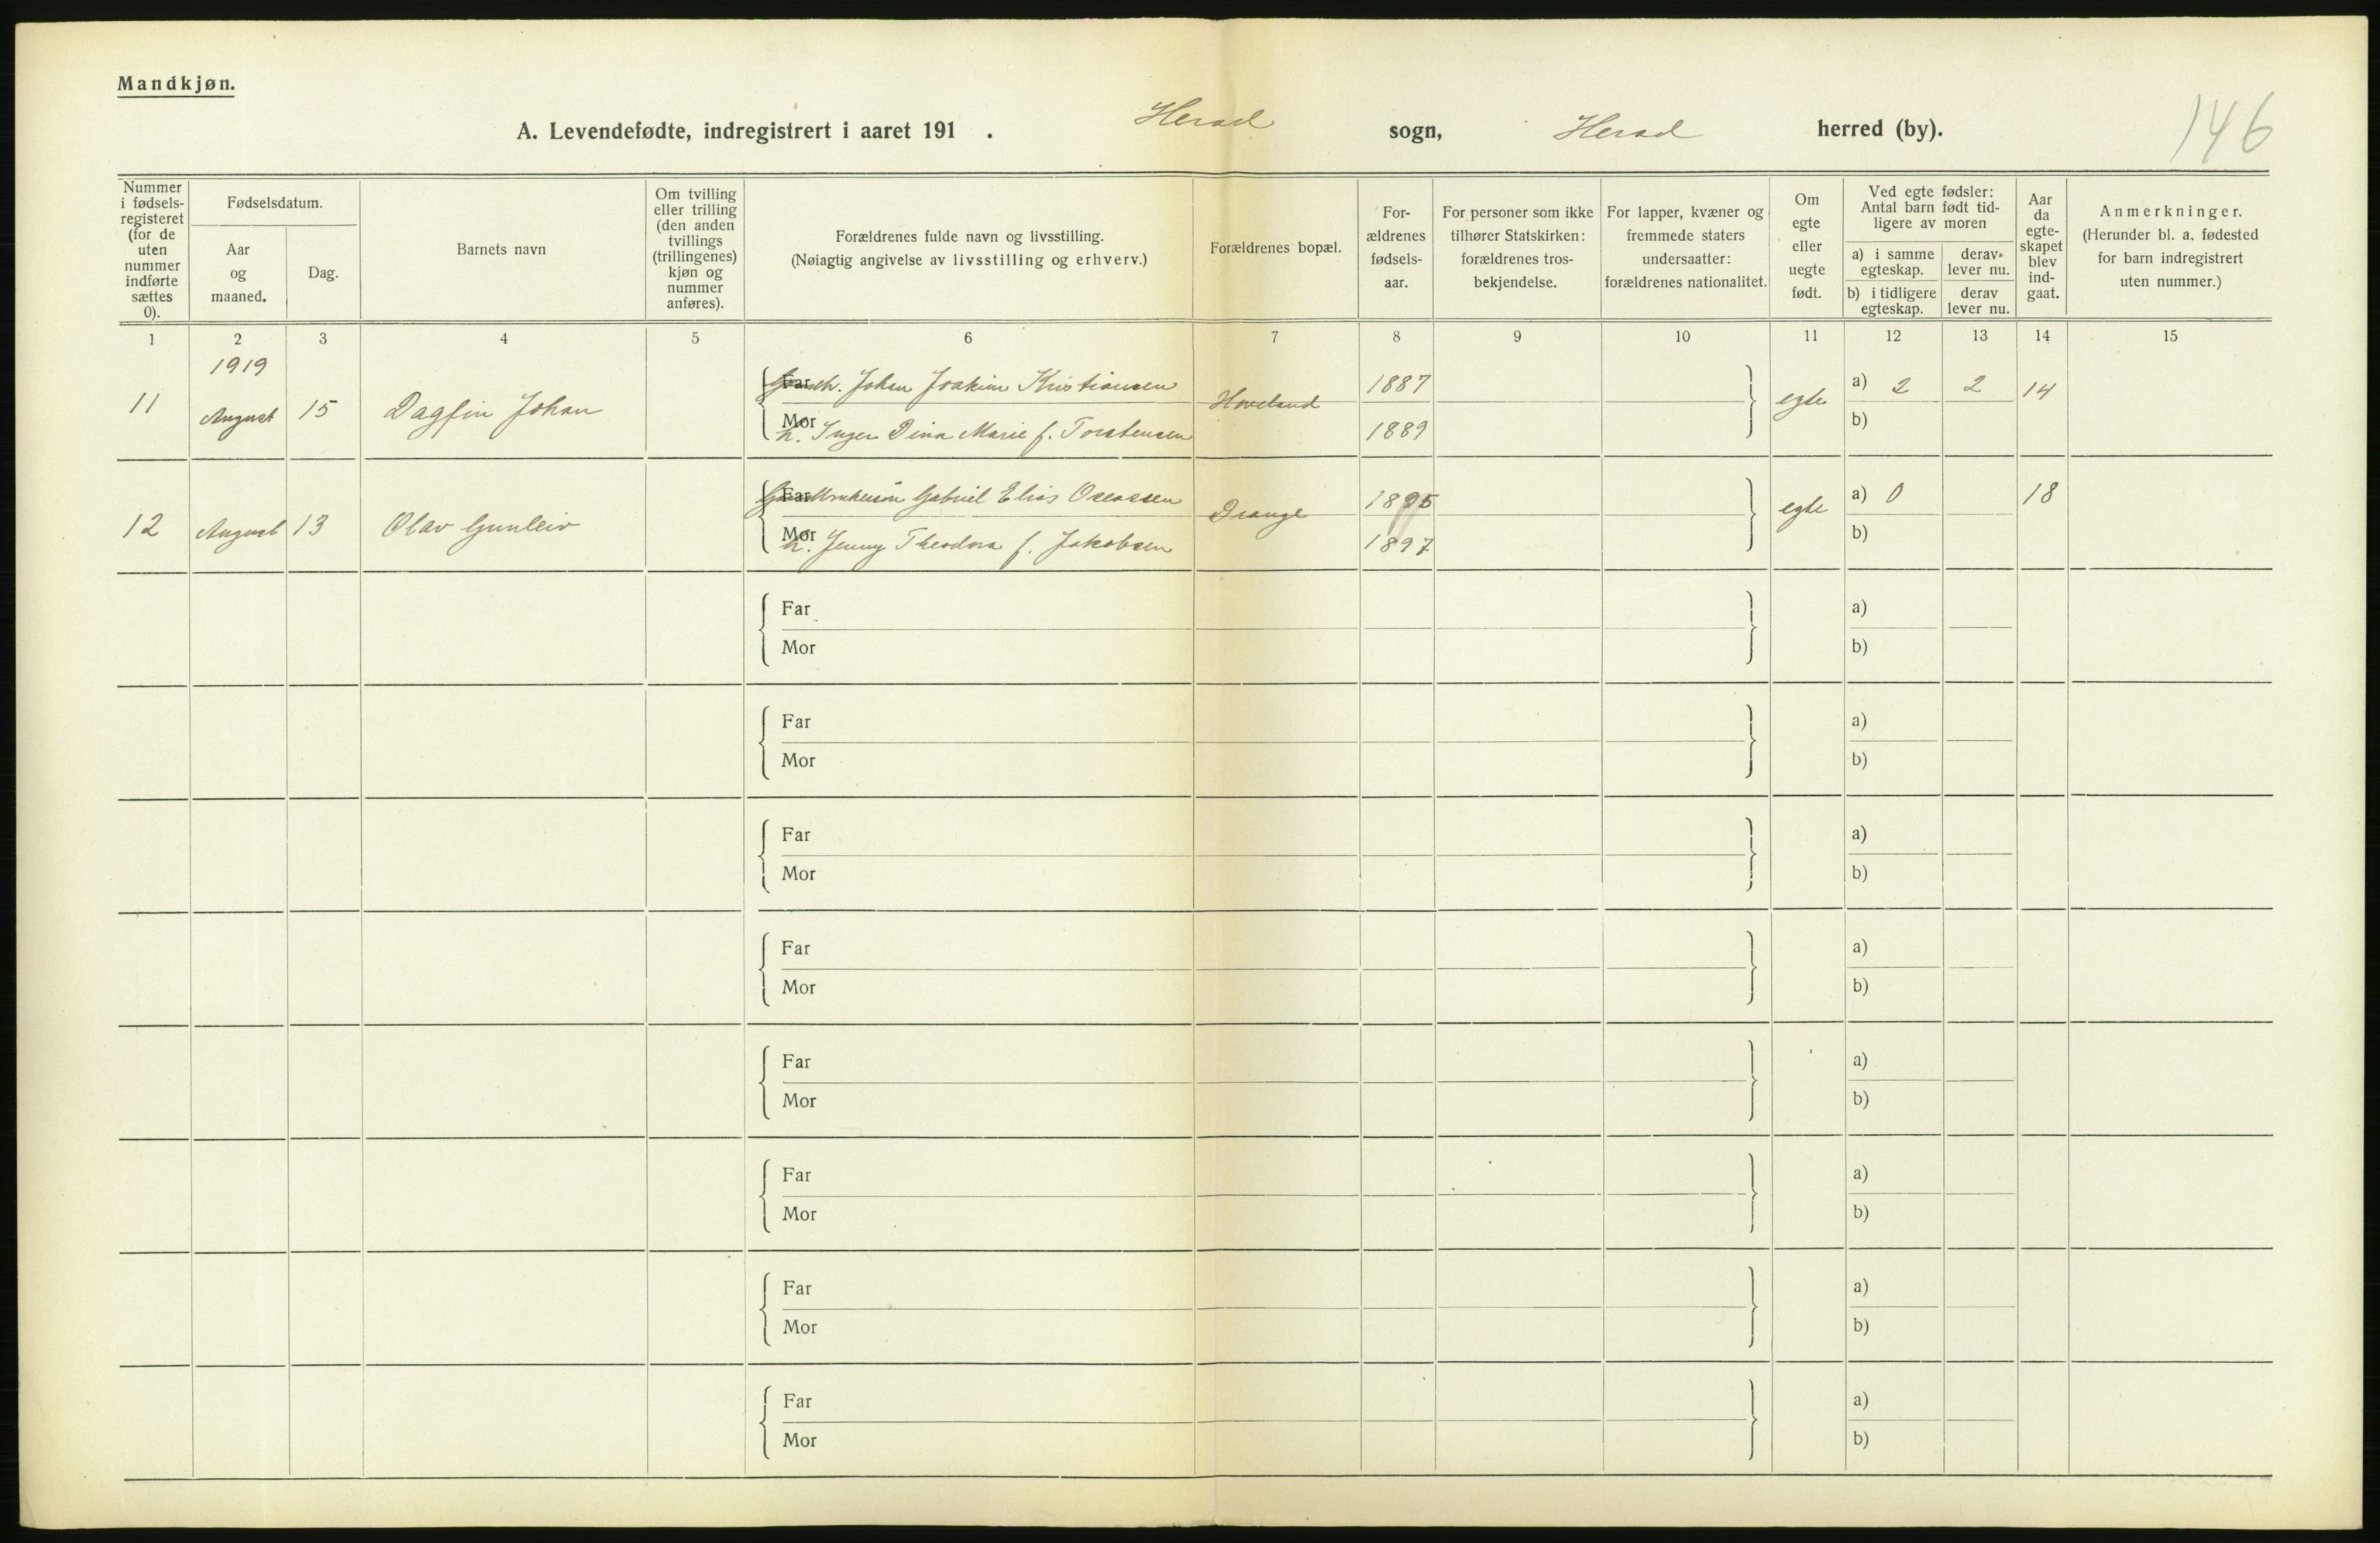 Mandkjøn.
A. Levendefødte, indregistrert i aaret 191 . Herad sogn, Herad herred (by).
146
Nummer i fødsels-registeret (for de uten nummer indførte sættes 0).
Fødselsdatum.
Aar og maaned.
Dag.
Barnets navn
Om tvilling eller trilling (den anden tvillings (trillingenes) kjøn og nummer anføres).
Forældrenes fulde navn og livsstilling.
(Nøiagtig angivelse av livsstilling og erhverv.)
Forældrenes bopæl.
For-ældrenes fødsels-aar.
For personer som ikke tilhører Statskirken: forældrenes tros-bekjendelse.
For lapper, kvæner og fremmede staters undersaatter: forældrenes nationalitet.
Om egte eller uegte født.
Ved egte fødsler: Antal barn født tid-ligere av moren
a) i samme egteskap.
derav lever nu.
b) i tidligere egteskap.
derav lever nu.
Aar da egte-skapet blev ind-gaat.
Anmerkninger.
(Herunder bl. a. fødested for barn indregistrert uten nummer.)
1 2 3 4 5 6 7 8 9 10 11 12 13 14 15
1919
Far Johan Joakim Kristiansen 1887 a) 2 2
11 August 15 Dagfin Johan Hoveland egte 14
Mor h. Inger Dina Marie f. Torstensen 1889 b)
Far Gabriel Elias Oseassen 1895 a) 0 18
12 August 13 Olav Gunleiv Drange egte
Mor h. Jenny Theodora f. Jakobsen 1897 b)
Far a)
Mor b)
Far a)
Mor b)
Far a)
Mor b)
Far a)
Mor b)
Far a)
Mor b)
Far a)
Mor b)
Far a)
Mor b)
Far a)
Mor b)